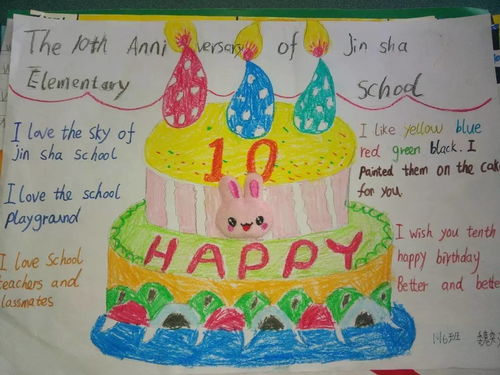 The 10th Anniversary of Jin sha
Elementary School
I love the sky of
jin sha school
I love the school
playground
I love School
teachers and
lassmates
10
HAPPY
I like yellow blue
red green black. I
Painted them on the cak
for you.
I wish you tenth
happy birthday
Better and bette